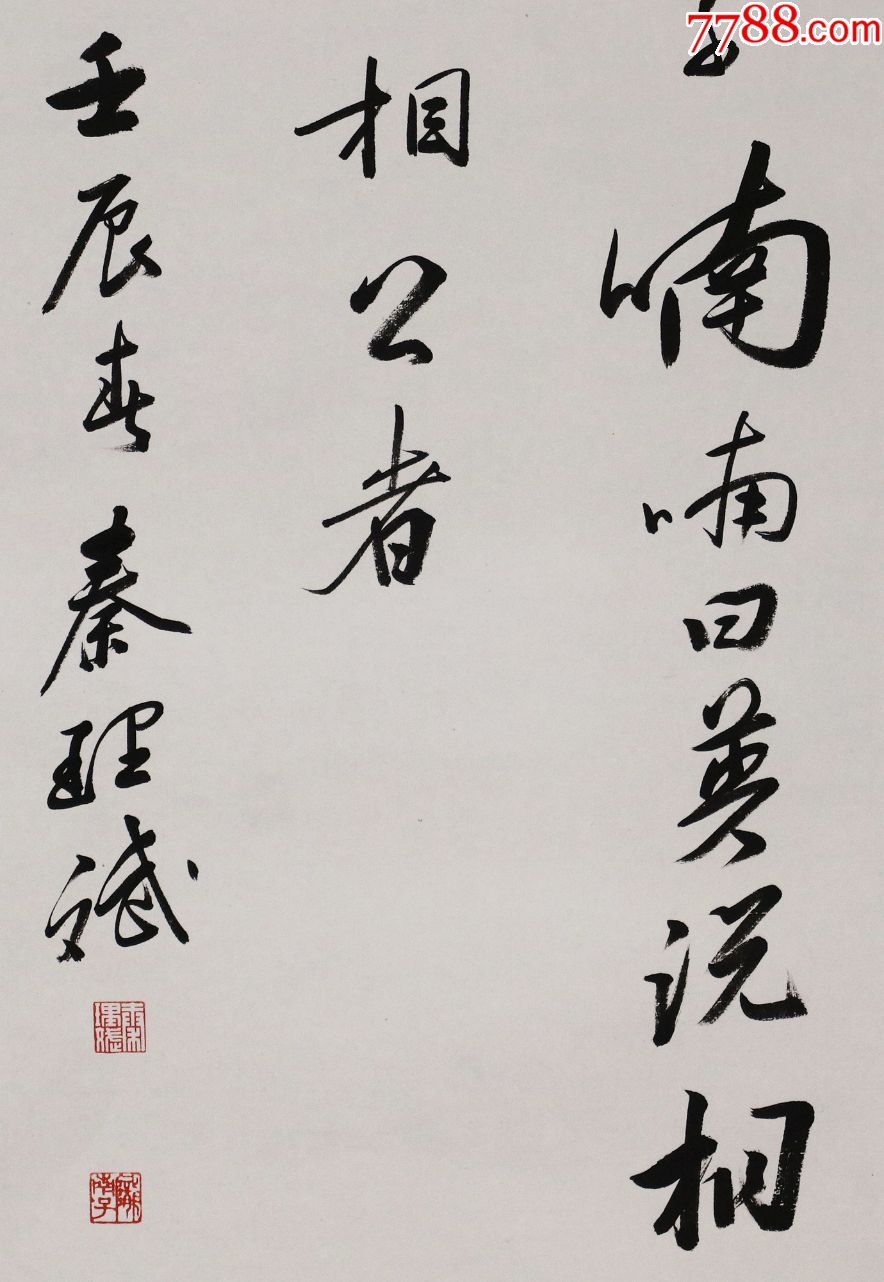 7788.com
喃喃曰莫说相
相公者
壬辰春秦理斌